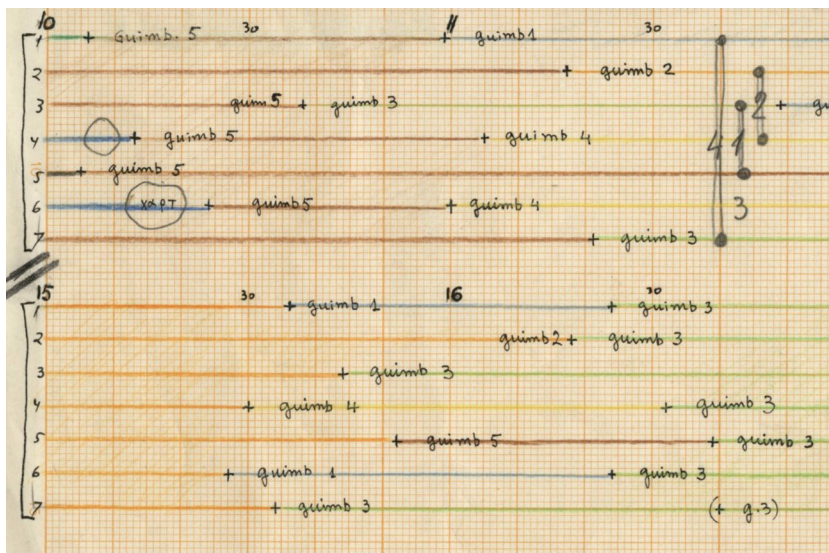 10 30 11 30
1 + Guimb. 5 + guimb 1
2 + guimb 2
3 guim 5 + guimb 3 +
4 + guimb 5 + guimb 4
5 + guimb 5
6 χαρτ + guimb 5 + guimb 4
7 + guimb 3
4 1 2 3
15 30 16 30
1 + guimb 1 + guimb 3
2 guimb 2 + guimb 3
3 + guimb 3
4 + guimb 4 + guimb 3
5 + guimb 5 + guimb 3
6 + guimb 1 + guimb 3
7 + guimb 3 (+ g.3)